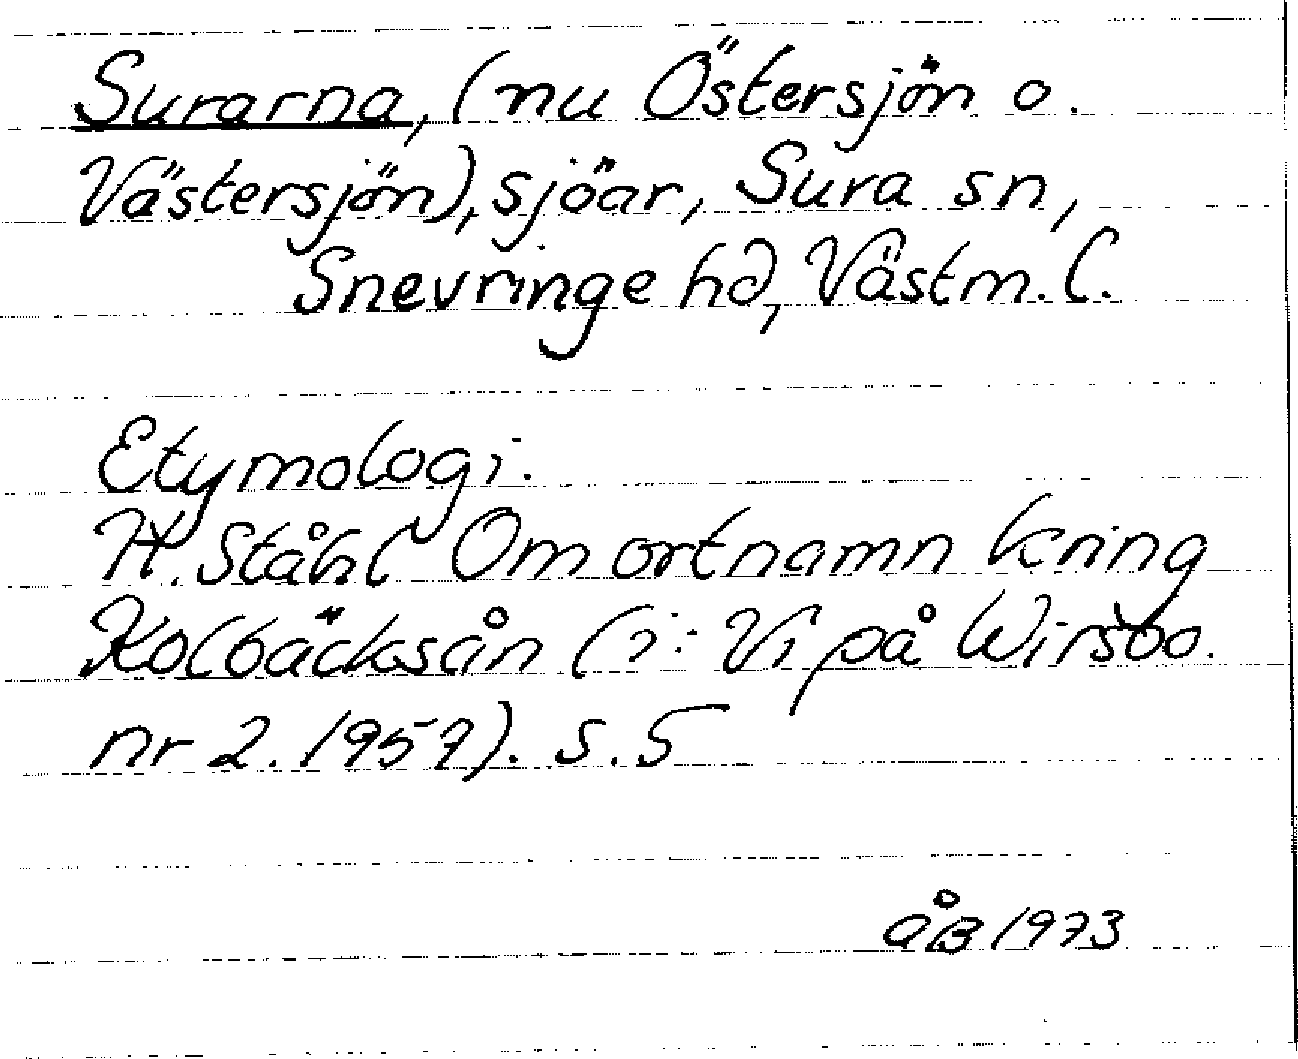 Surarna, (nu Östersjön o.
Västersjön), sjöar, Sura sn,
Snevringe hd, Västm. l.
Etymologi.
H. Ståhl Om ortnamn kring
Kolbäcksån (i: Vi på Wirsbo.
nr 2. 1957). S. 5
ÅB 1973